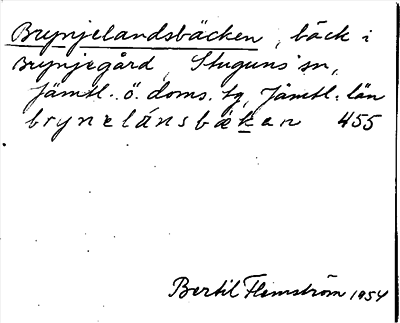 Brynjelandsbäcken, bäck i
Brynjegård, Stuguns sn,
Jämtl. ö. doms. tg, Jämtl. län
brynelánsbäken 455
Bertil Flemström 1954